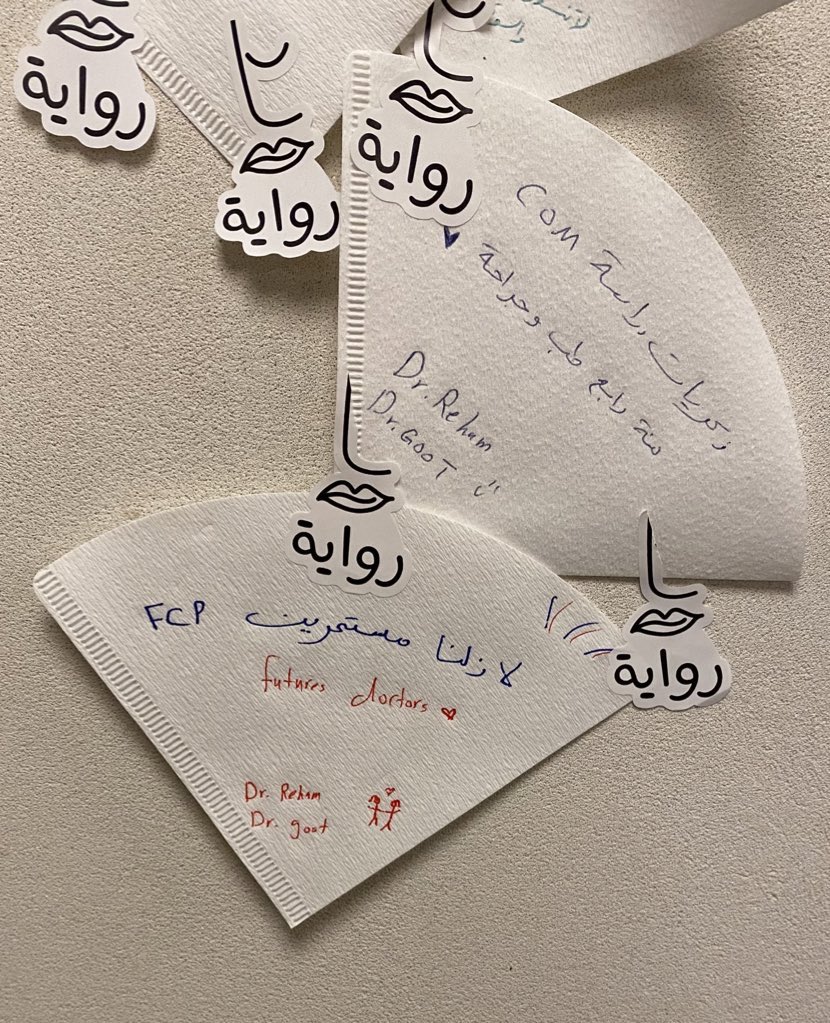 رواية
رواية
رواية
ذكريات دراسة COM
سنة رابع طب وجراحة
Dr. Reham
Dr. GOOT
رواية
رواية
لا زلنا مستمرين FCP
futures doctors
Dr. Reham
Dr. goot